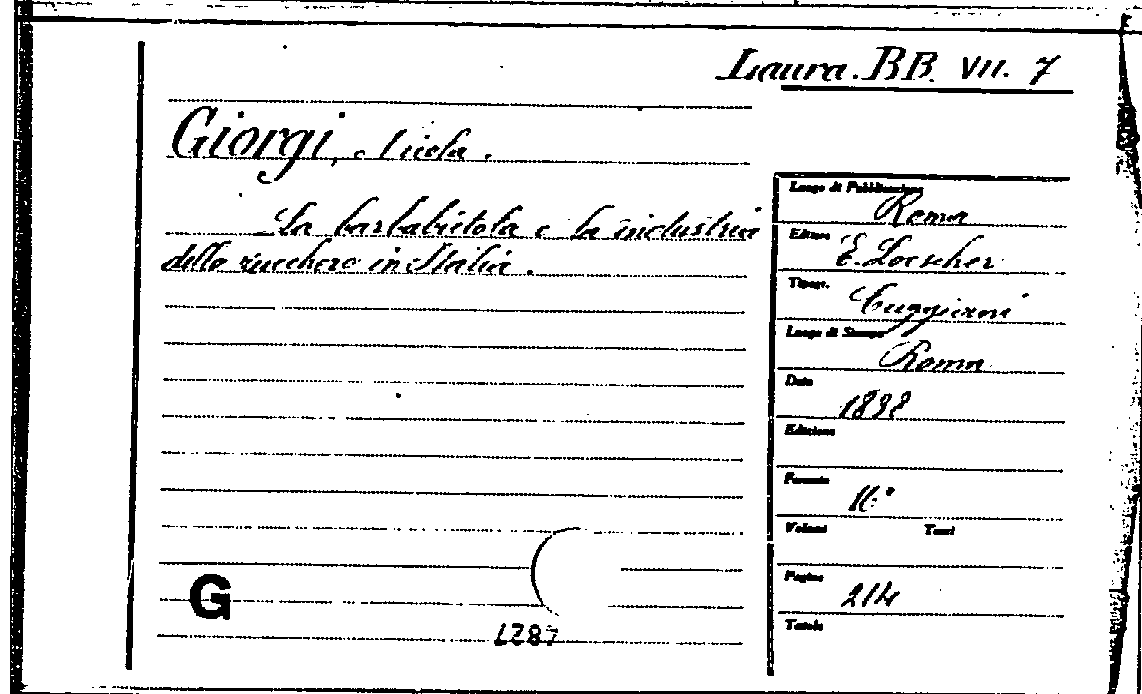 Laura. BB. VII. 7
Giorgi, Nicola.
La barbabietola e la industria
dello zucchero in Italia.
Luogo di Pubblicazione
Roma
Editore
E. Loescher
Tipogr.
Cuggiani
Luogo di Stampa
Roma
Data
1898
Edizione
Formato
16°
Volumi Tomi
Pagine
214
Tavole
G